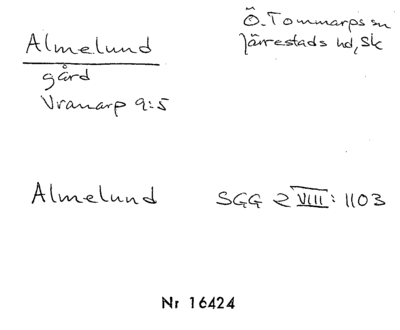 Almelund
gård
Vranarp 9:5
Ö. Tommarps sn
Järrestads hd, Sk
Almelund SGG 2 VIII: 1103
Nr 16424